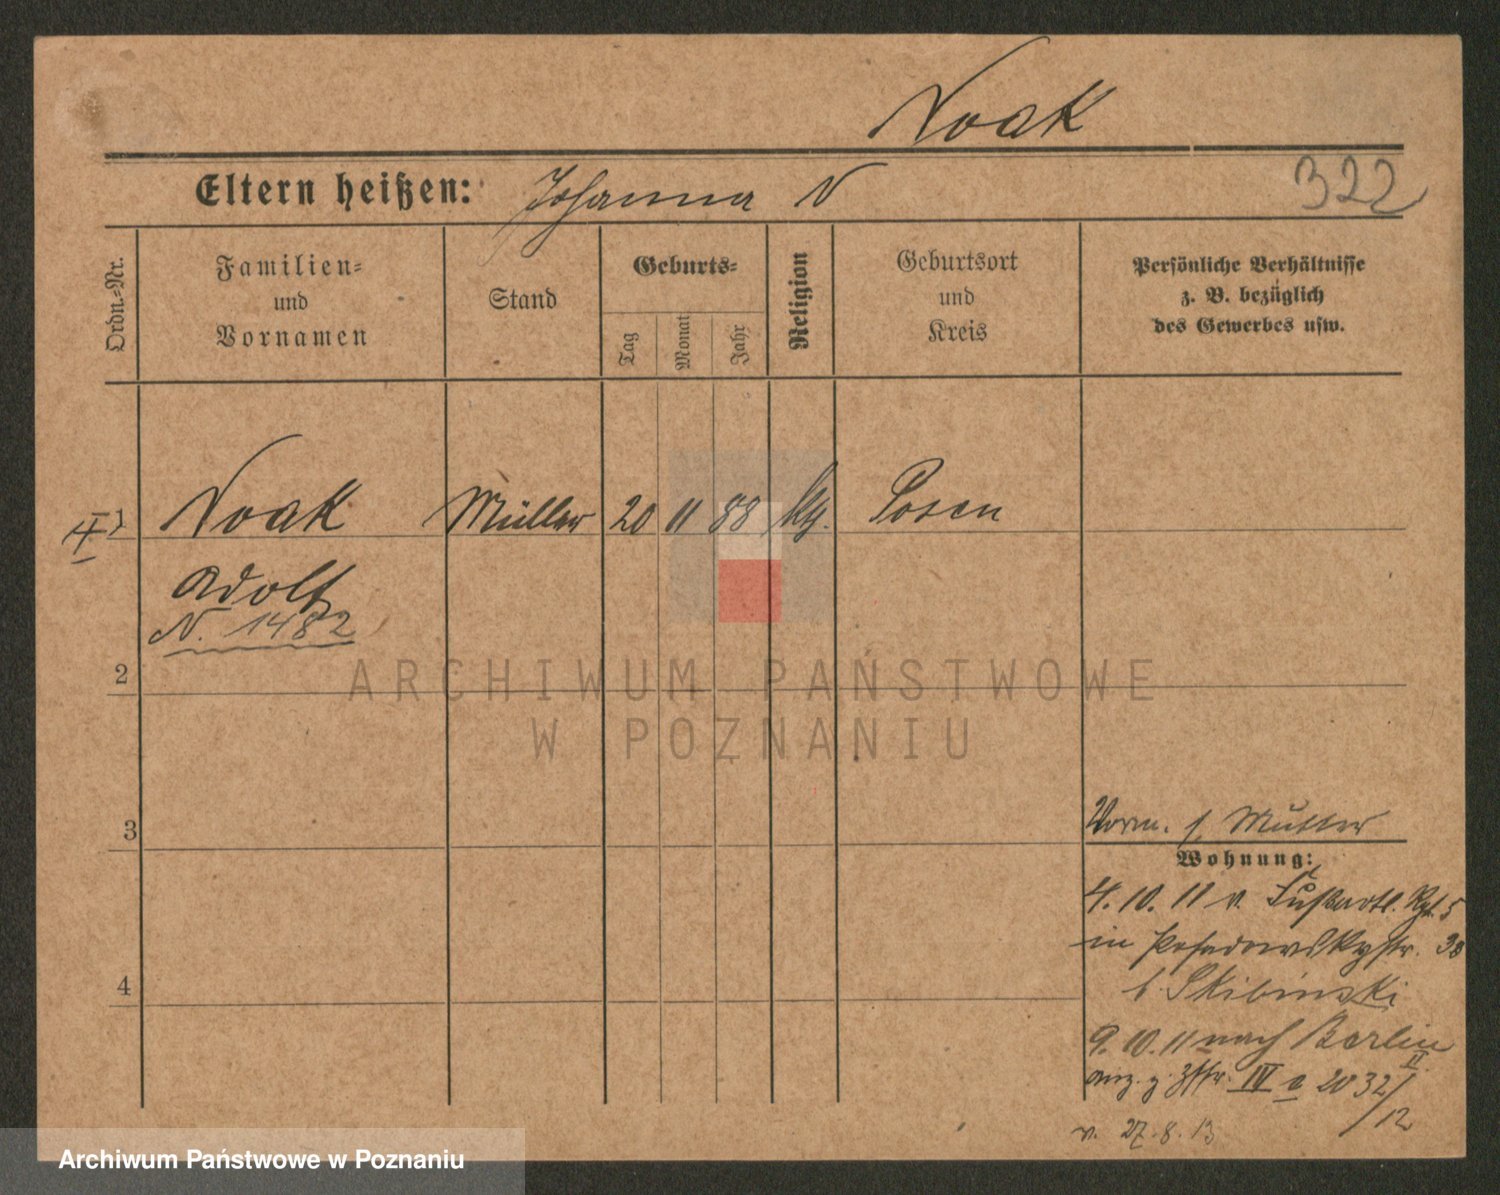 Noak
Eltern heißen: Johanna N
322
Ordn.-Nr.
Familien-
und
Vornamen
Stand
Geburts-
Tag
Monat
Jahr
Religion
Geburtsort
und
Kreis
Persönliche Verhältnisse
z. B. bezüglich
des Gewerbes usw.
1 Noak Müller 20 11 88 kth. Posen
Adolf
N. 1482
2
3
Vorm. s. Mutter
Wohnung:
4
4. 10. 11 v. Fußartl. Rgt. 5
in Posadowskystr. 38
b. Skibinski
9. 10. 11 nach Berlin
IV a 2032/12
II
v. 27.8.13
ARCHIWUM PAŃSTWOWE
W POZNANIU
Archiwum Państwowe w Poznaniu